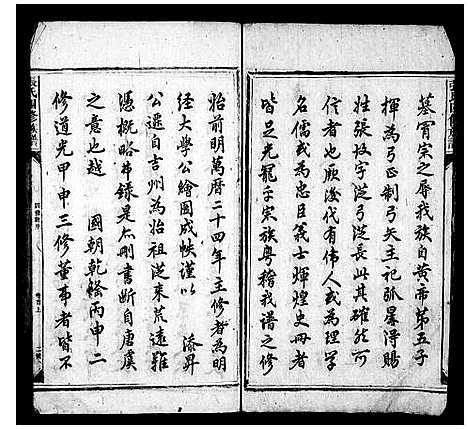 墓胥宗之辱我族自黃帝第五子
揮為弓正制弓矢主記弧星得賜
姓張故字從弓從長此其確然可
信者也厥後代有偉人或為理學
名儒或為忠臣義士輝煌史冊者
皆足光寵乎宗族粵稽我譜之修
始前明萬曆二十四年主修者為明
經大學公繪圖成帙謹以 添昇
公遷自吉州為始祖從來荒遠難
憑概略弗錄是亦刪書斷自唐虞
之意也越 國朝乾隆丙申二
修道光甲申三修董事者皆不
張氏四修族譜
四修新序
卷首上